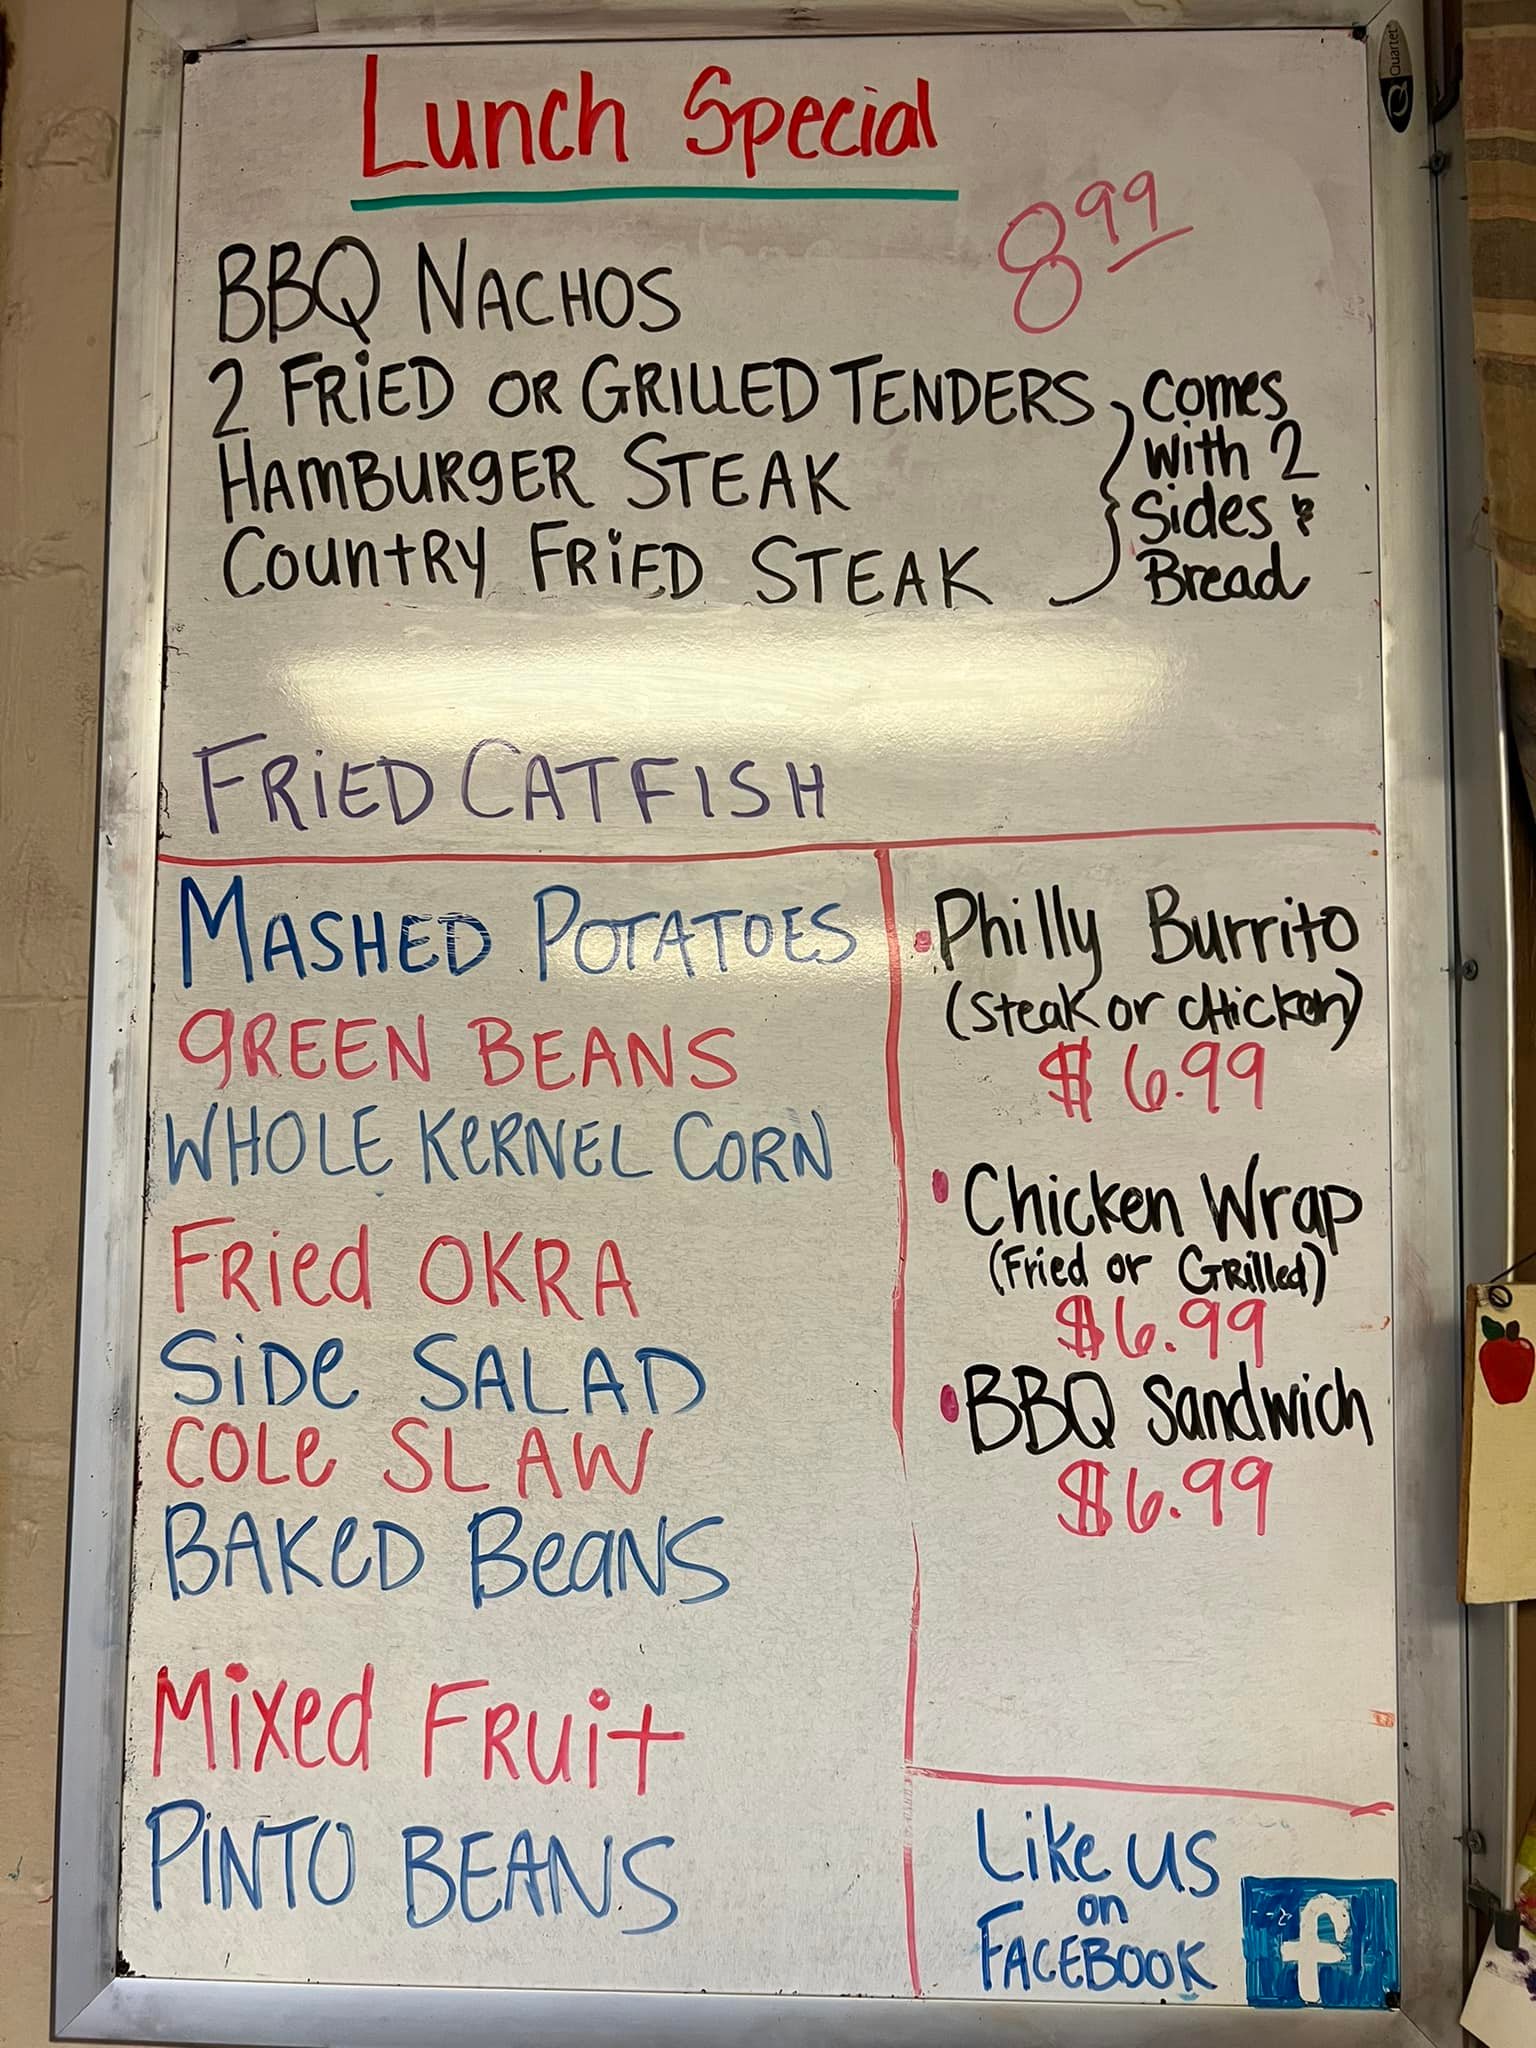 Lunch Special
8.99
BBQ NACHOS
2 FRiED OR GRILLED TENDERS
HAMBURgER STEAK
COUNTRY FRiED STEAK
Comes
with 2
Sides &
Bread
FRiED CATFISH
MASHED POTATOES
gREEN BEANS
WHOLE KeRNEL CORN
FRied OKRA
SiDe SALAD
COLe SLAW
BAKeD BeaNS
Mixed FRuit
PiNTO BEANS
Philly Burrito
(Steak or CHicken)
$6.99
Chicken Wrap
(Fried or GRilled)
$6.99
BBQ Sandwich
$6.99
Like US
on
FACEBOOK
f
Quartet